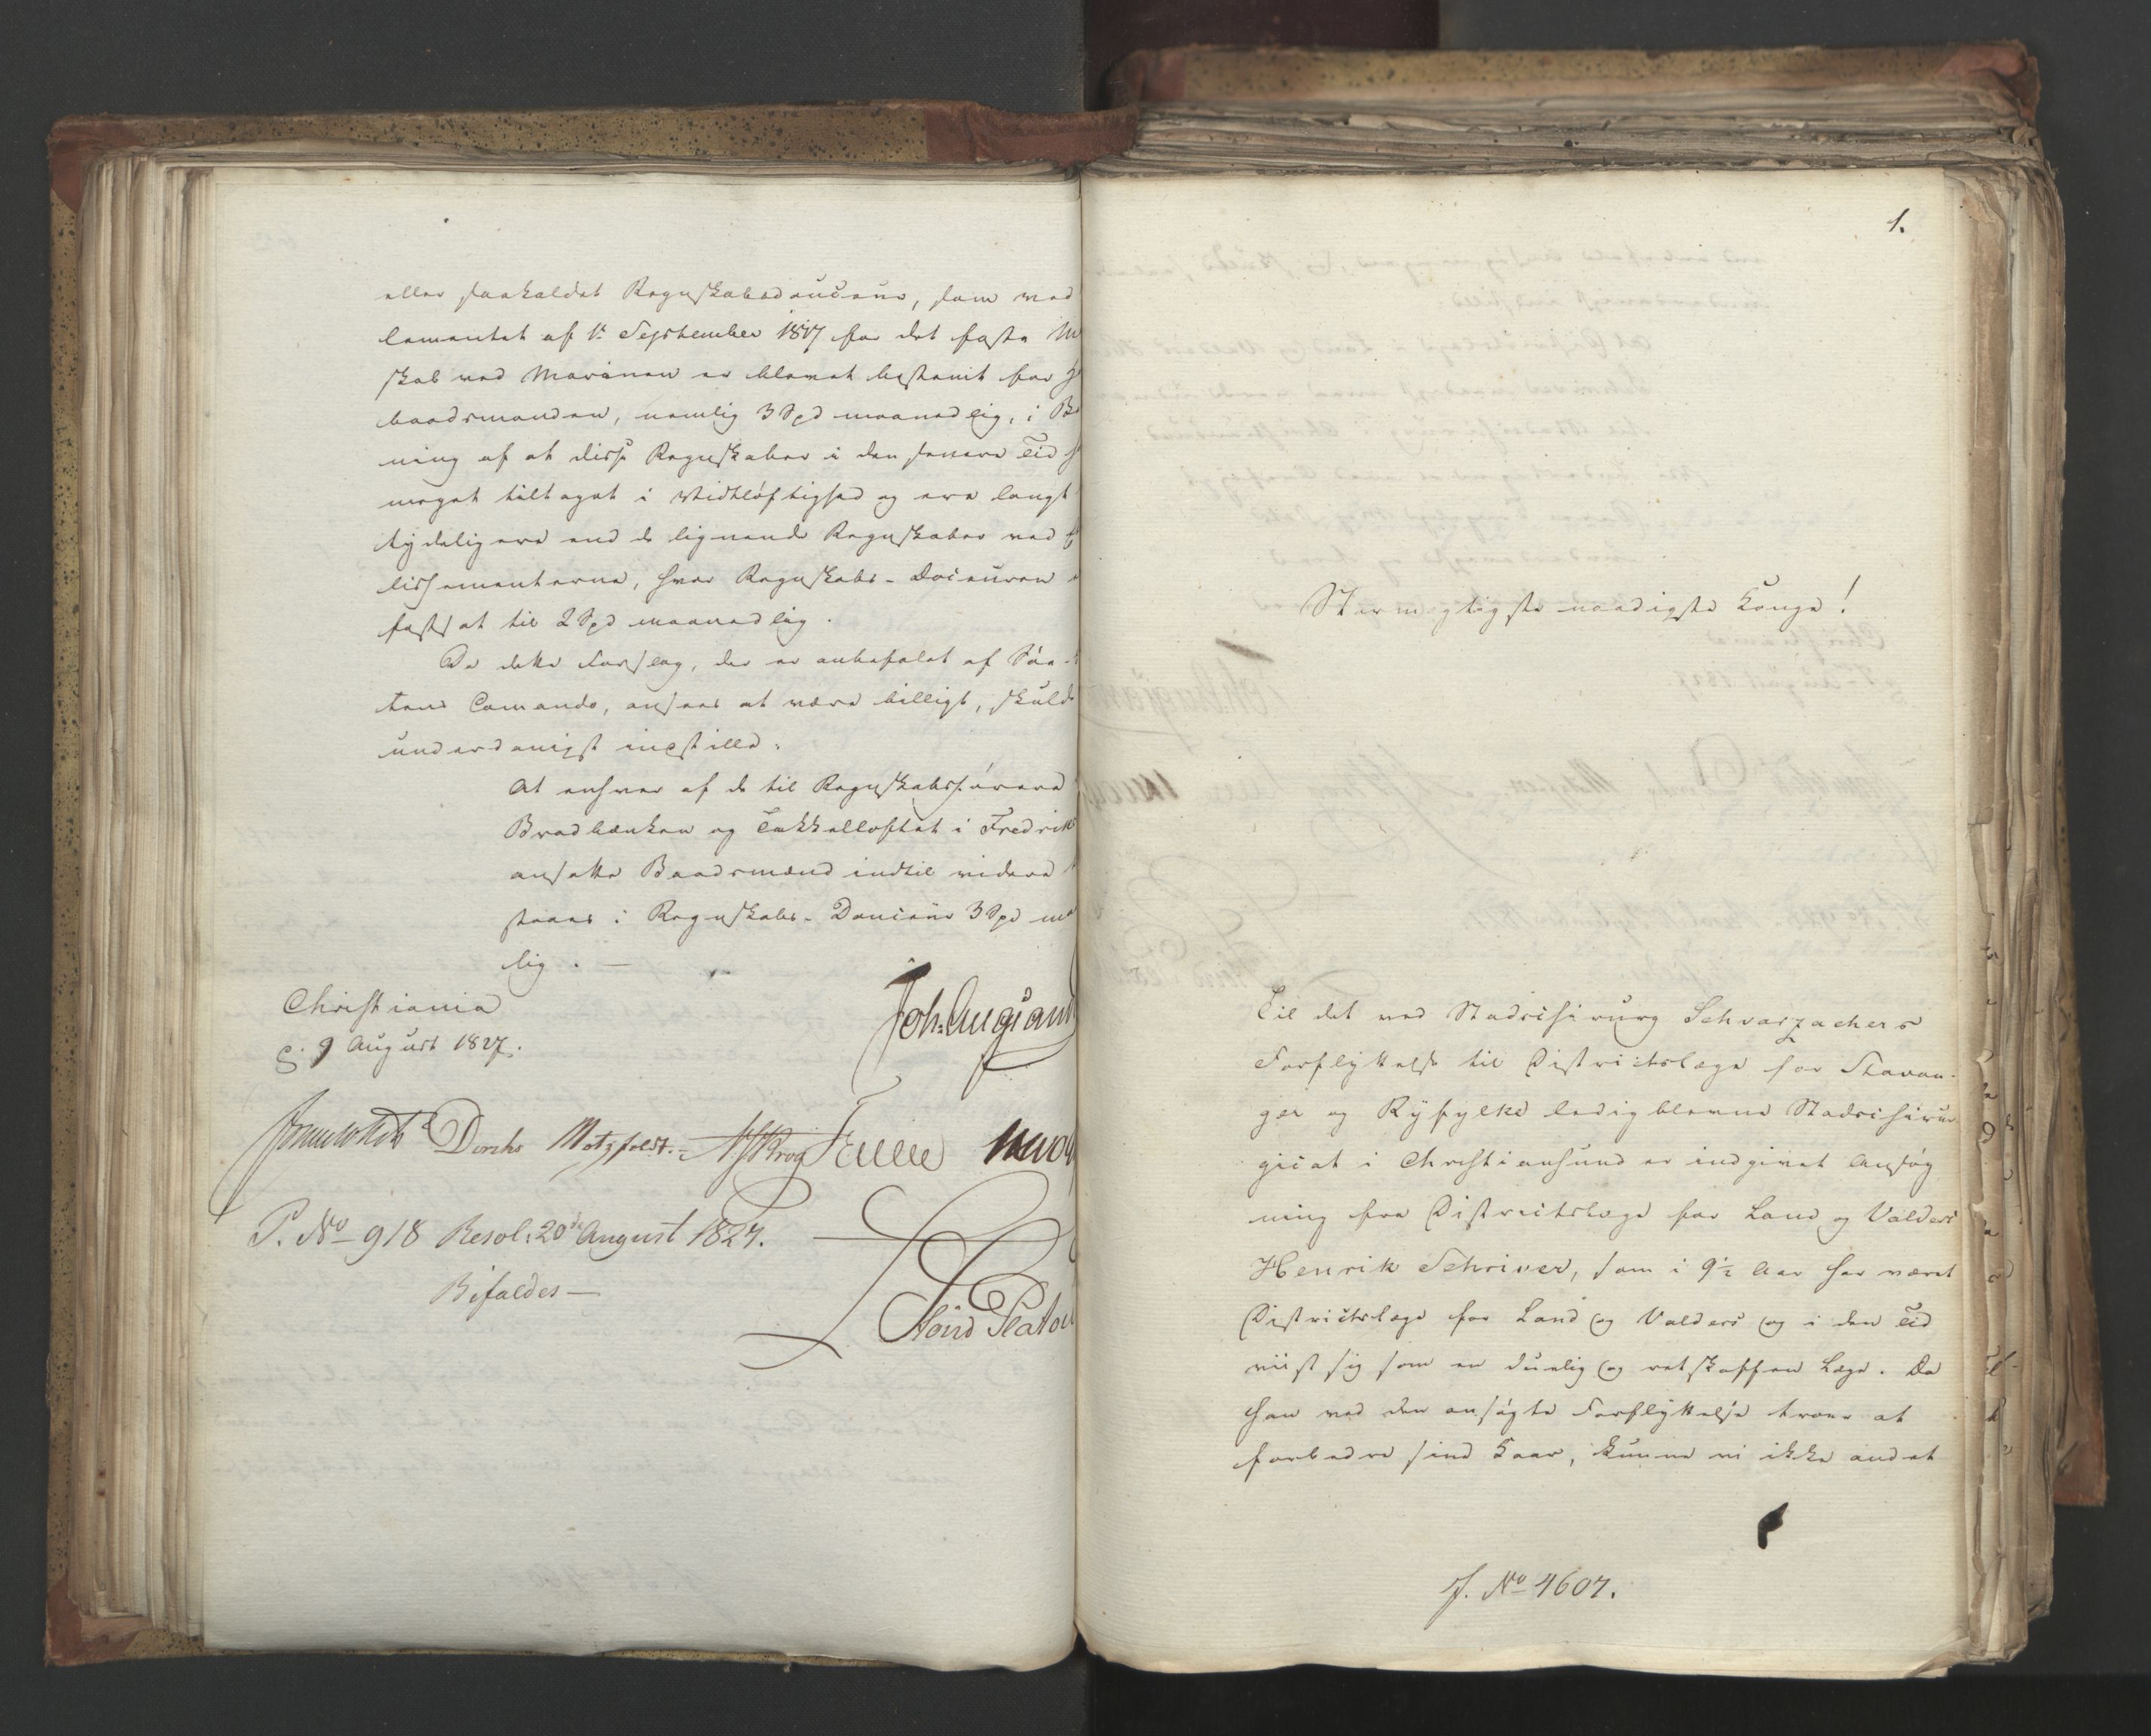 eller saakaldet Regnskabsdouceur, som ved
lementet af 1ste September 1817 for det faste
skab ved Marinen er blevet bestemt for
baadsmanden, nemlig 3 Spd maanedlig, i
ning af at disse Regnskaber i den senere Tid
meget tiltaget i Vidtløftighed og ere langt
tydeligere end de lignende Regnskaber ved
lissementerne, hvor Regnskabs-Douceuren
fastsat til 2 Spd maanedlig.
Da dette Forslag, der er anbefalet af Søe-
tens Comando, ansees at være billigt, skulde
underdanigst indstille:
At enhver af de til Regnskabsførere
Bradbænken og Takkelloftet i Fredriks
ansatte Baadsmænd indtil videre
staaes i Regnskabs-Douceur 3 Spd ma
lig. —
Christiania
d. 9 August 1827.
Joh. Aug: Sand
Diriks Motzfeldt. Krog
P. No 918 Resol: 20de August 1827.
Bifaldes —
1.
Stormægtigste naadigste Konge!
Til det ved Stadschirurg Schvarzachers
Forflyttelse til Districtslæge for Stavan-
ger og Ryfylke ledigblevne Stadschirur
gicat i Christiansund er indgivet Ansøg
ning fra Districtslæge for Land og Valders
Henrik Schriver, som i 9½ Aar har været
Districtslæge for Land og Valders og i den Tid
viist sig som en duelig og retskaffen Læge. Da
han ved den ansøgte Forflyttelse troer at
forbedre sine Kaar, kunne vi ikke andet
J. No 4607.